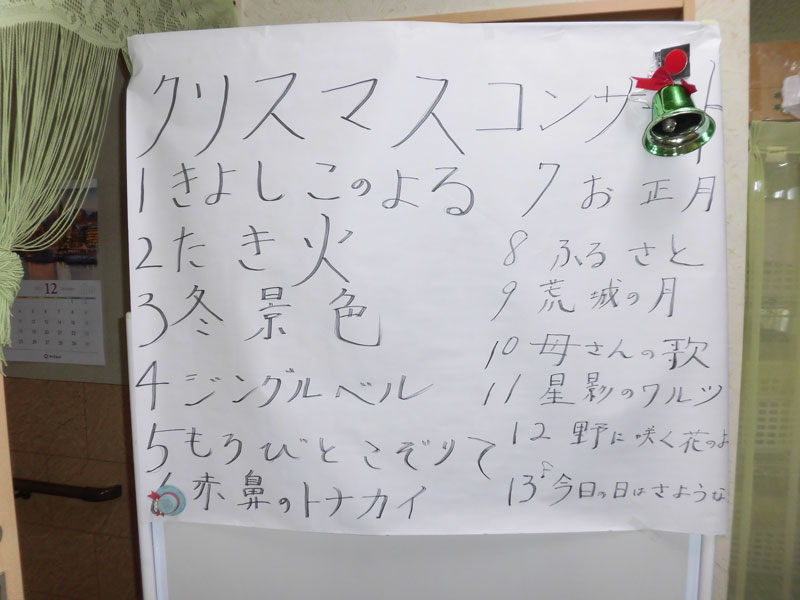 クリスマスコンサート
1 きよしこのよる
2 たき火
3 冬景色
4 ジングルベル
5 もろびとこぞりて
6 赤鼻のトナカイ
7 お正月
8 ふるさと
9 荒城の月
10 母さんの歌
11 星影のワルツ
12 野に咲く花のよ
13 今日の日はさような
12